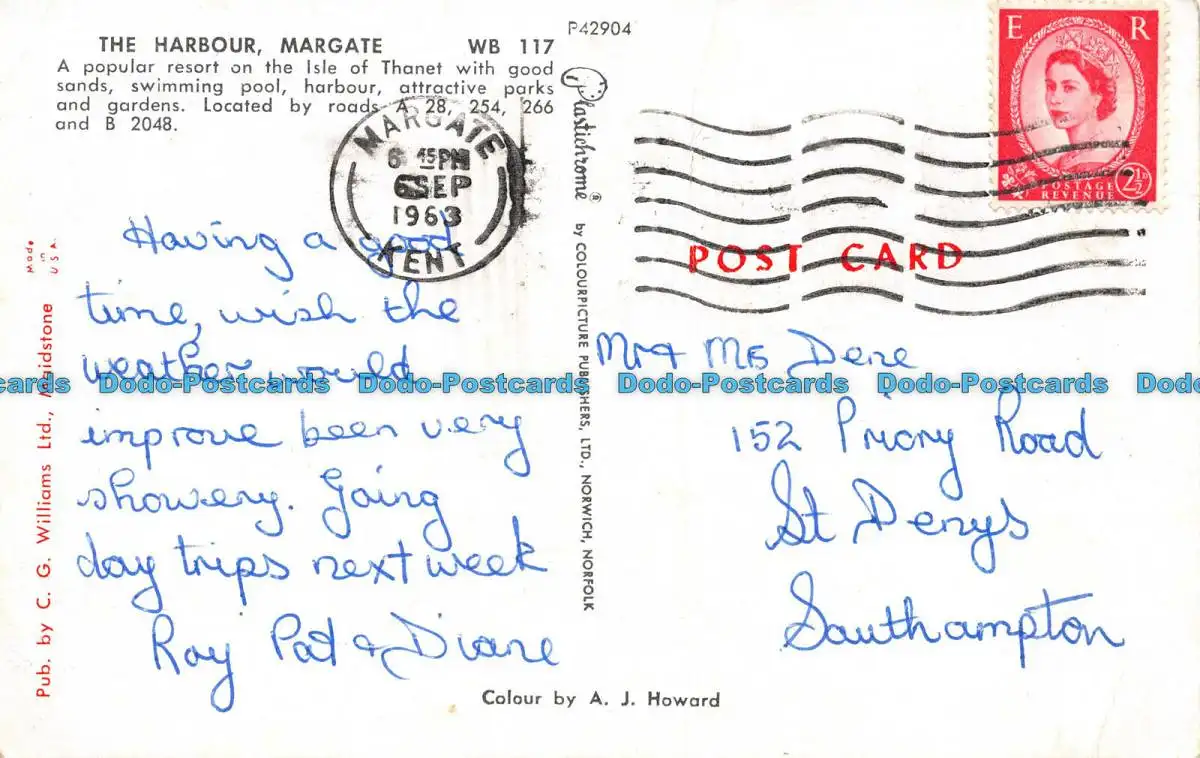 P42904
THE HARBOUR, MARGATE WB 117
A popular resort on the Isle of Thanet with good
sands, swimming pool, harbour, attractive parks
and gardens. Located by roads A 28, 254, 266
and B 2048.
MARGATE
6 45PM
6 SEP
1963
KENT
E R
POSTAGE
REVENUE
2½D
POST CARD
Having a good
time, wish the
weather would
improve been very
showery. Going
day trips next week
Roy Pat & Diane
Mr + Ms Dere
152 Priory Road
St Denys
Southampton
Plastichrome ® by COLOURPICTURE PUBLISHERS, LTD., NORWICH, NORFOLK
Made
in
U S A.
Pub. by C. G. Williams Ltd., Maidstone
Colour by A. J. Howard
Dodo-Postcards Dodo-Postcards Dodo-Postcards Dodo-Postcards